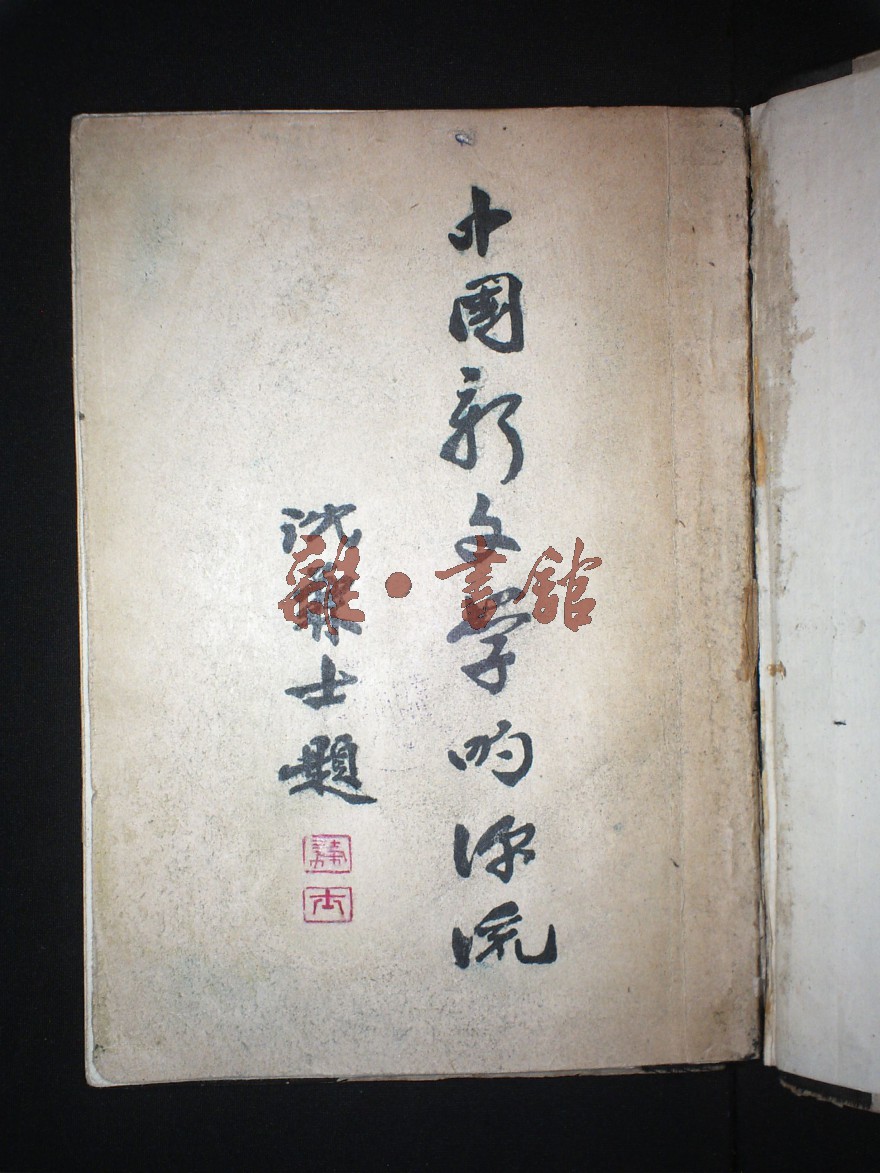 中國新文學的源流
沈兼士題
兼士
龍•書館